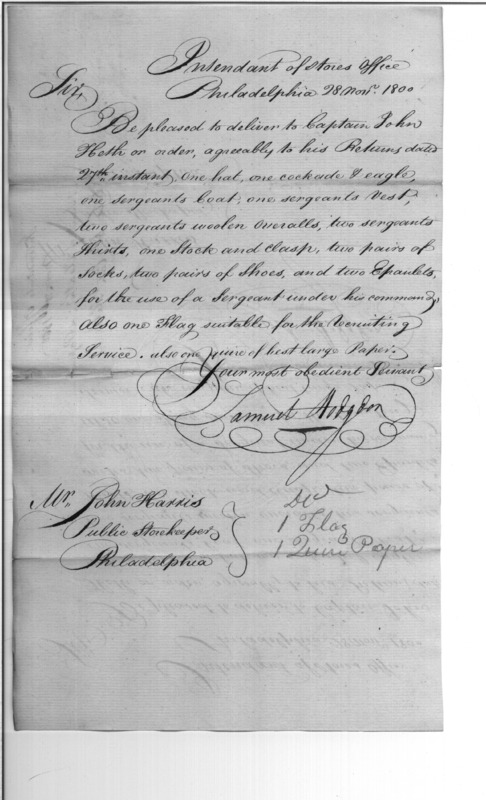 Intendant of Stores Office
Philadelphia 28 Novr. 1800
Sir,
Be pleased to deliver to Captain John
Heth or order, agreeably to his Returns dated
27th. instant, one hat, one cockade & eagle,
one sergeants Coat, one sergeants Vest,
two sergeants woolen Overalls, two sergeants
Shirts, one Stock and clasp, two pairs of
socks, two pairs of Shoes, and two Epaulets,
for the use of a Sergeant under his command,
also one Flag suitable for the recruiting
Service. also one quire of best large Paper.
Your most obedient Servant
Samuel Hodgdon
Mr. John Harris
Public Storekeeper
Philadelphia
1 Flag
1 Quire Paper